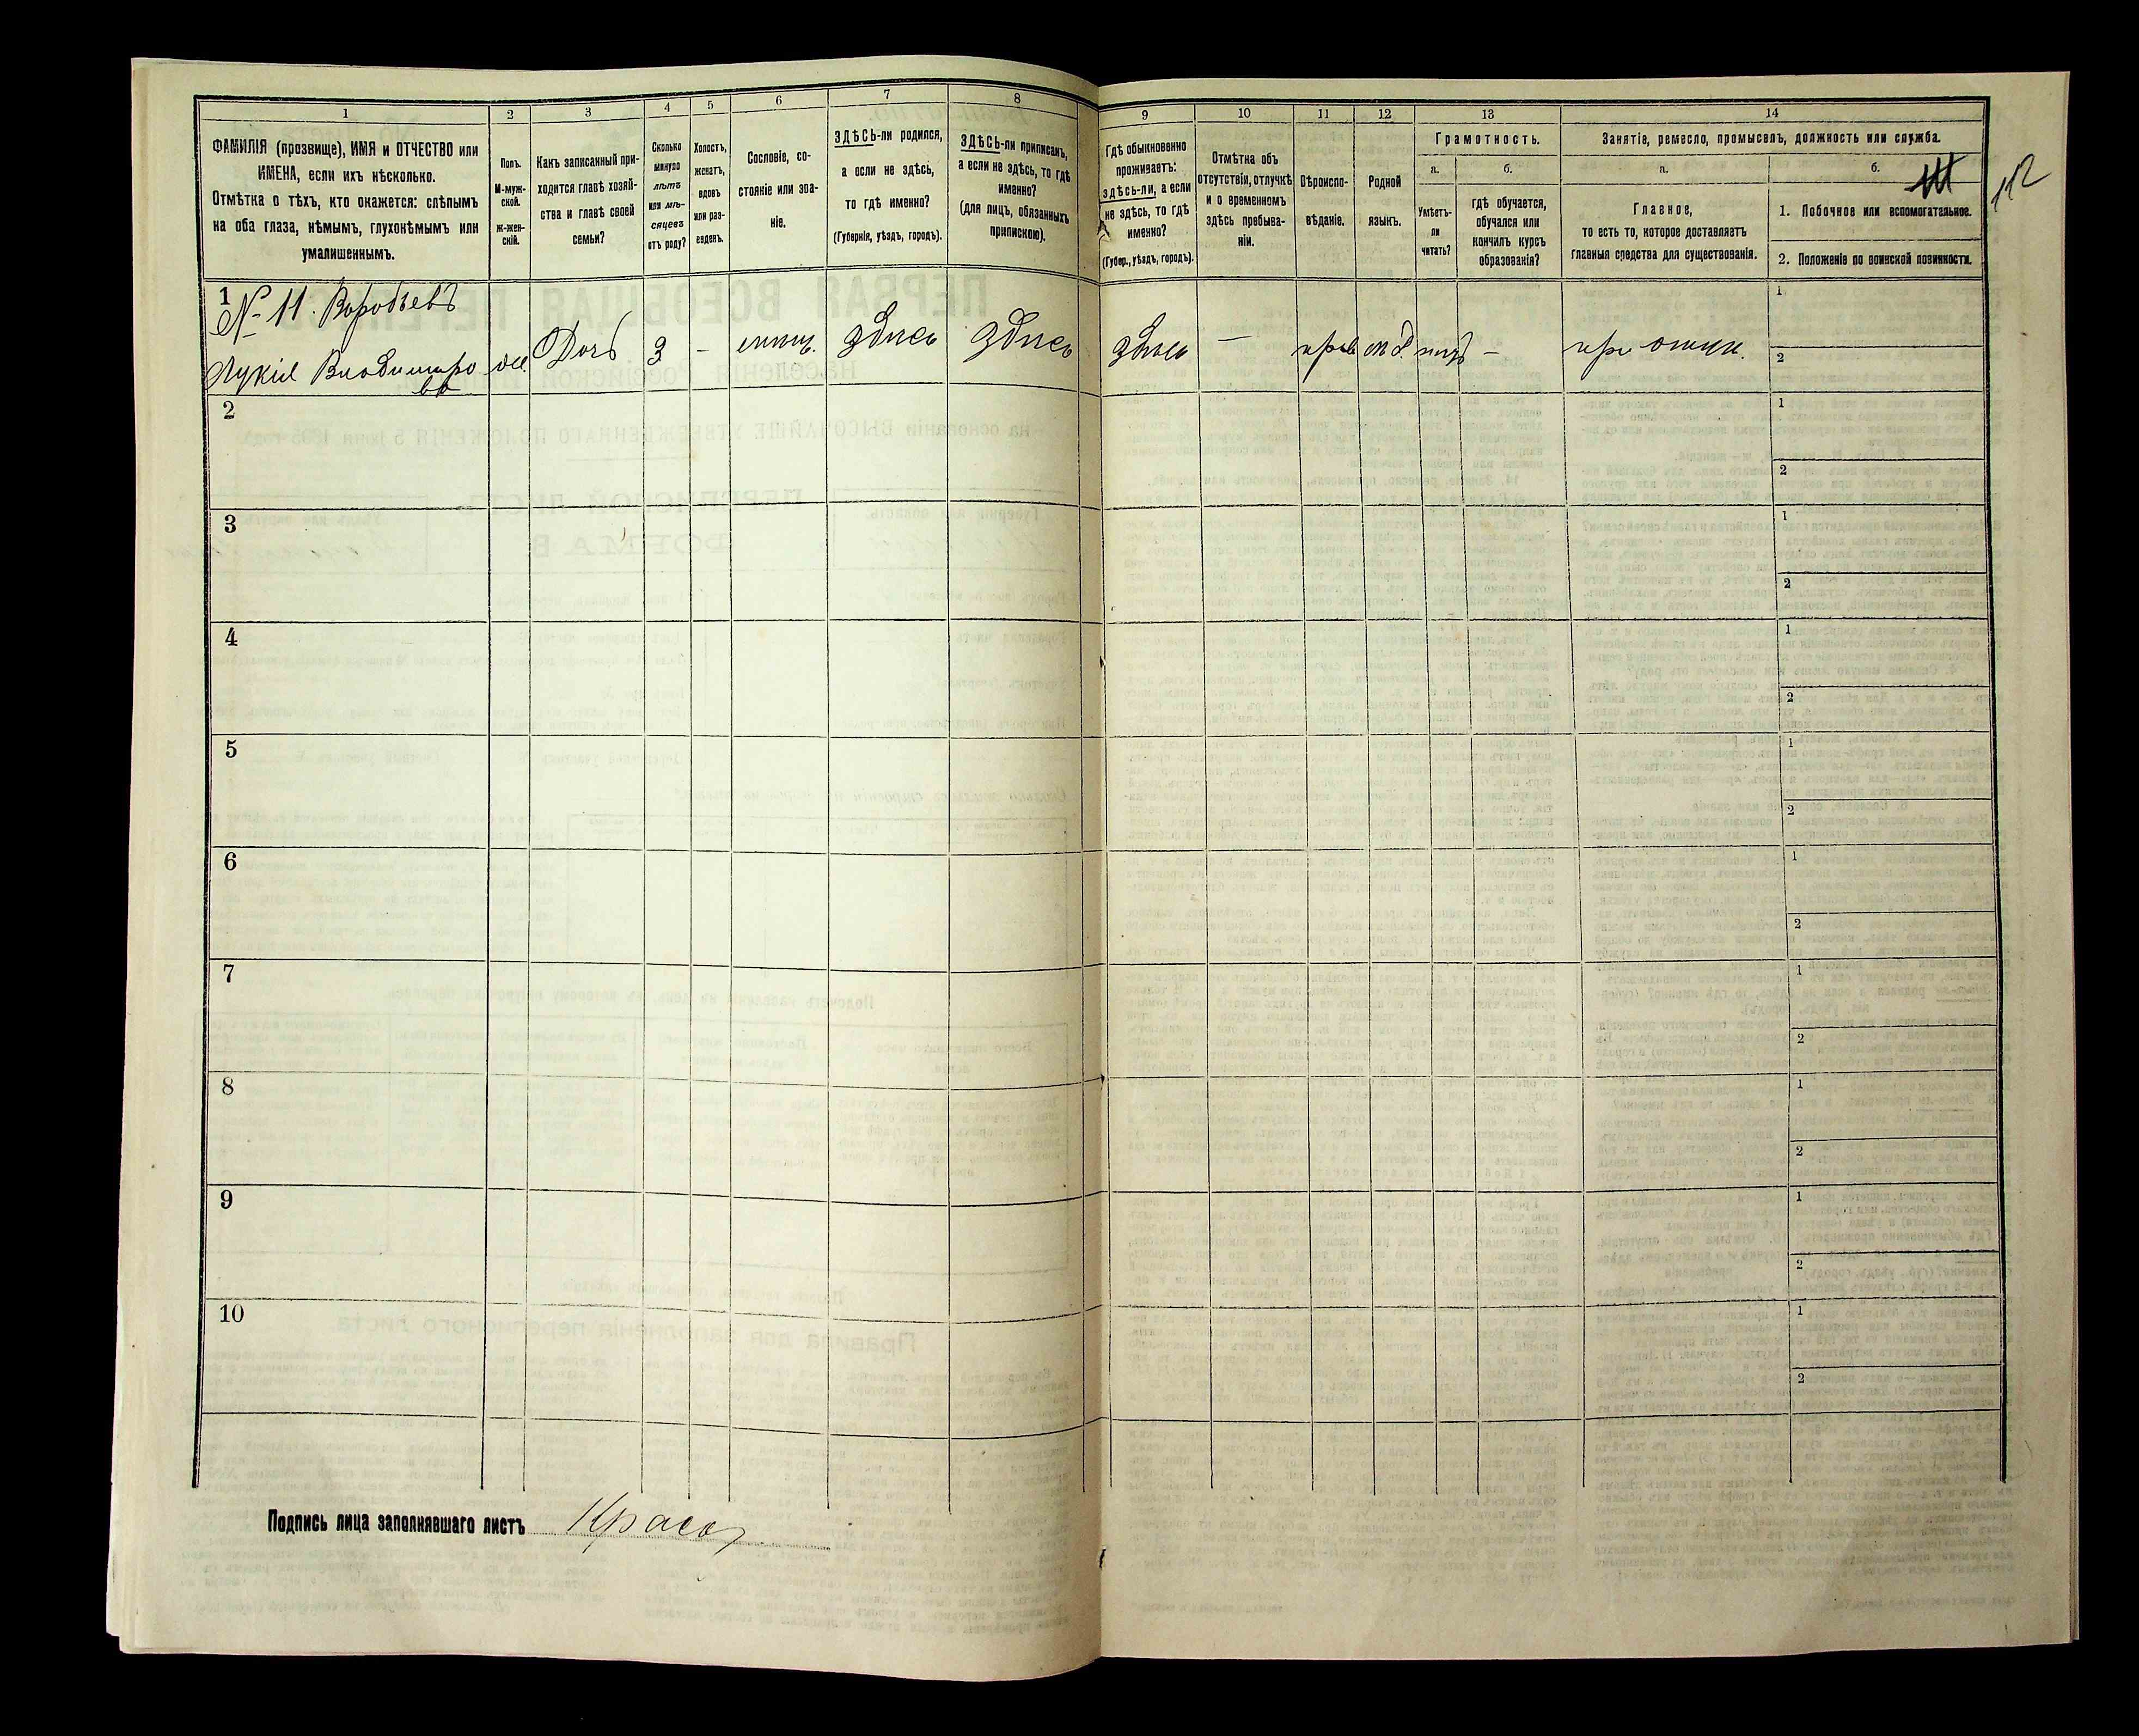 1
2
3
4
5
6
7
8
ФАМИЛІЯ (прозвище), ИМЯ и ОТЧЕСТВО или
ИМЕНА, если ихъ нѣсколько.
Отмѣтка о тѣхъ, кто окажется: слѣпымъ
на оба глаза, нѣмымъ, глухонѣмымъ или
умалишеннымъ.
Полъ.
М-муж-
ской.
Ж-жен-
скій.
Какъ записанный при-
ходится главѣ хозяй-
ства и главѣ своей
семьи?
Сколько
минуло
лѣтъ
или мѣ-
сяцевъ
отъ роду?
Холостъ,
женатъ,
вдовъ
или раз-
веденъ.
Сословіе, со-
стояніе или зва-
ніе.
ЗДѢСЬ-ли родился,
а если не здѣсь,
то гдѣ именно?
(Губернія, уѣздъ, городъ).
ЗДѢСЬ-ли приписанъ,
а если не здѣсь, то гдѣ
именно?
(для лицъ, обязанныхъ
припискою).
1
№ 11. Воробьевъ
Лукія Владимиро
ва
Дочь
3
-
мѣщ.
здѣсь
здѣсь
2
3
4
5
6
7
8
9
10
Подпись лица заполнявшаго листъ
9
10
11
12
13
14
Гдѣ обыкновенно
проживаетъ:
здѣсь-ли, а если
не здѣсь, то гдѣ
именно?
(Губер., уѣздъ, городъ).
Отмѣтка объ
отсутствіи, отлучкѣ
и о временномъ
здѣсь пребыва-
ніи.
Вѣроиспо-
вѣданіе.
Родной
языкъ.
Грамотность.
а.
Умѣетъ-
ли
читать?
б.
гдѣ обучается,
обучался или
кончилъ курсъ
образованія?
Занятіе, ремесло, промыселъ, должность или служба.
а.
Главное,
то есть то, которое доставляетъ
главныя средства для существованія.
б.
1. Побочное или вспомогательное.
2. Положеніе по воинской повинности.
112
здѣсь
-
прав
нѣтъ
-
при отцѣ.
1
2
1
2
1
2
1
2
1
2
1
2
1
2
1
2
1
2
1
2